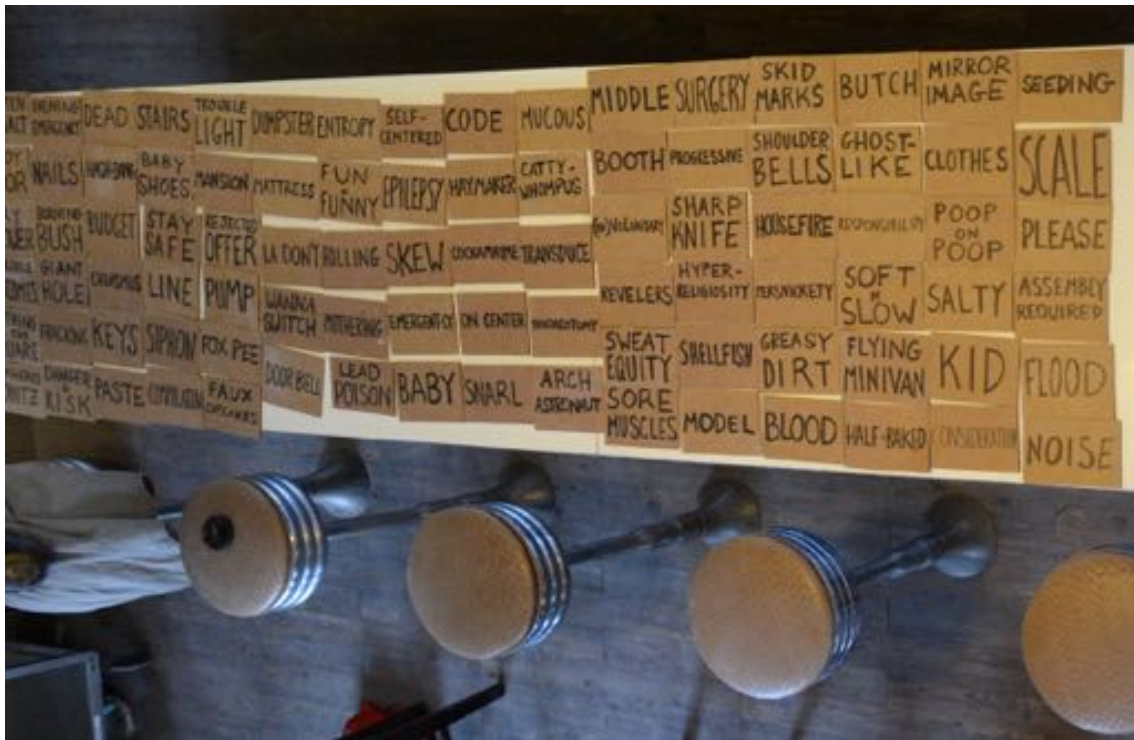 DEAD
STAIRS
TROUBLE
LIGHT
DUMPSTER
ENTROPY
SELF-
CENTERED
CODE
MUCOUS
MIDDLE
SURGERY
SKID
MARKS
BUTCH
MIRROR
IMAGE
SEEDING
NAILS
BABY
SHOES
MANSION
MATTRESS
FUN
N
FUNNY
EPILEPSY
HAYMAKER
CATTY-
WHOMPUS
BOOTH
PROGRESSIVE
SHOULDER
BELLS
GHOST-
LIKE
CLOTHES
SCALE
BUSH
BUDGET
STAY
SAFE
REJECTED
OFFER
LA DON'T
ROLLING
SKEW
COCKAMAMIE
TRANSDUCE
SHARP
KNIFE
HOUSEFIRE
RESPONSIBILITY
POOP
ON
POOP
PLEASE
GIANT
HOLE
LINE
PUMP
WANNA
SWITCH
MITHERING
EMERGENT-CY
ON CENTER
REVELERS
HYPER-
RELIGIOSITY
PERSNICKETY
SOFT
N
SLOW
SALTY
ASSEMBLY
REQUIRED
FRACKING
KEYS
SIPHON
FOX PEE
DOOR BELL
LEAD
POISON
BABY
SNARL
ARCH
ASTRONAUT
SWEAT
EQUITY
SHELLFISH
GREASY
DIRT
FLYING
MINIVAN
KID
FLOOD
DANGER
&
RISK
PASTE
FAUX
SORE
MUSCLES
MODEL
BLOOD
HALF-BAKED
CONSIDERATION
NOISE